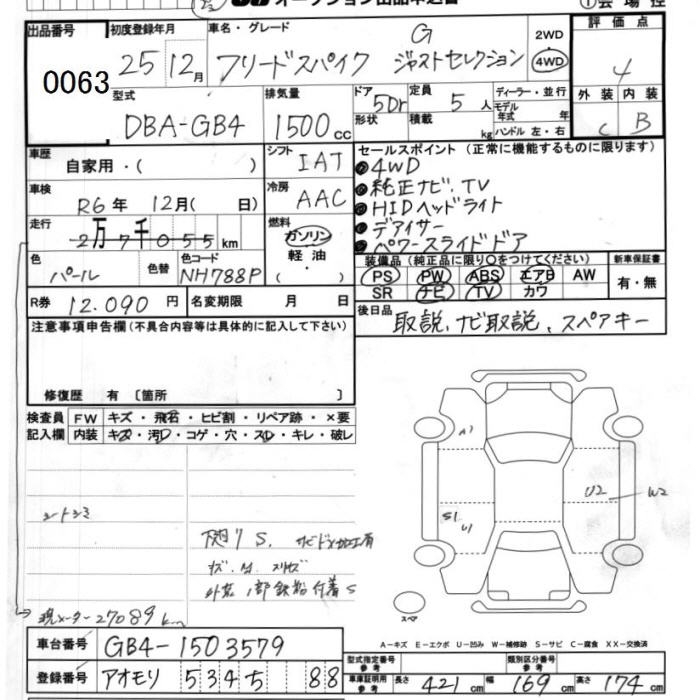 オークション出品申込書
①会場控
出品番号 0063
初度登録年月 25 12月
車名・グレード フリードスパイク G ジャストセレクション
2WD 4WD
評価点 4
外装 C 内装 B
型式 DBA-GB4
排気量 1500cc
ドア形状 5Dr
定員 5人
積載 kg
ディーラー・並行
モデル年式 年
ハンドル 左・右
車歴 自家用・( )
シフト IAT
冷房 AAC
車検 R6年 12月( 日)
走行 2万7千055km
燃料 ガソリン 軽油 ( )
色 パール 色替
色コード NH788P
R券 12.090円
名変期限 月 日
セールスポイント(正常に機能するものに限ります)
●4WD
●純正ナビ.TV
●HIDヘッドライト
●デアイサー
●パワースライドドア
装備品(純正品に限り○をつけてください)
PS PW ABS エアB AW
SR ナビ TV カワ
新車保証書 有・無
後日品 取説、ナビ取説、スペアキー
注意事項申告欄(不具合内容等は具体的に記入して下さい)
修復歴 有〔箇所 〕
検査員記入欄
FW キズ・飛石・ヒビ割・リペア跡・×要
内装 キズ・汚レ・コゲ・穴・スレ・キレ・破レ
シートシミ
下廻りS. サビ止メ加工有
外装1部鉄粉付着S
現メーター27089km
A1
S1 U1
U2 W2
スペア
A-キズ E-エクボ U-凹み W-補修跡 S-サビ C-腐食 XX-交換済
車台番号 GB4-1503579
登録番号 アオモリ 534 ち 88
型式指定番号 参考
類別区分番号 参考
車庫証明用参考 長さ 421cm 幅 169cm 高さ 174cm